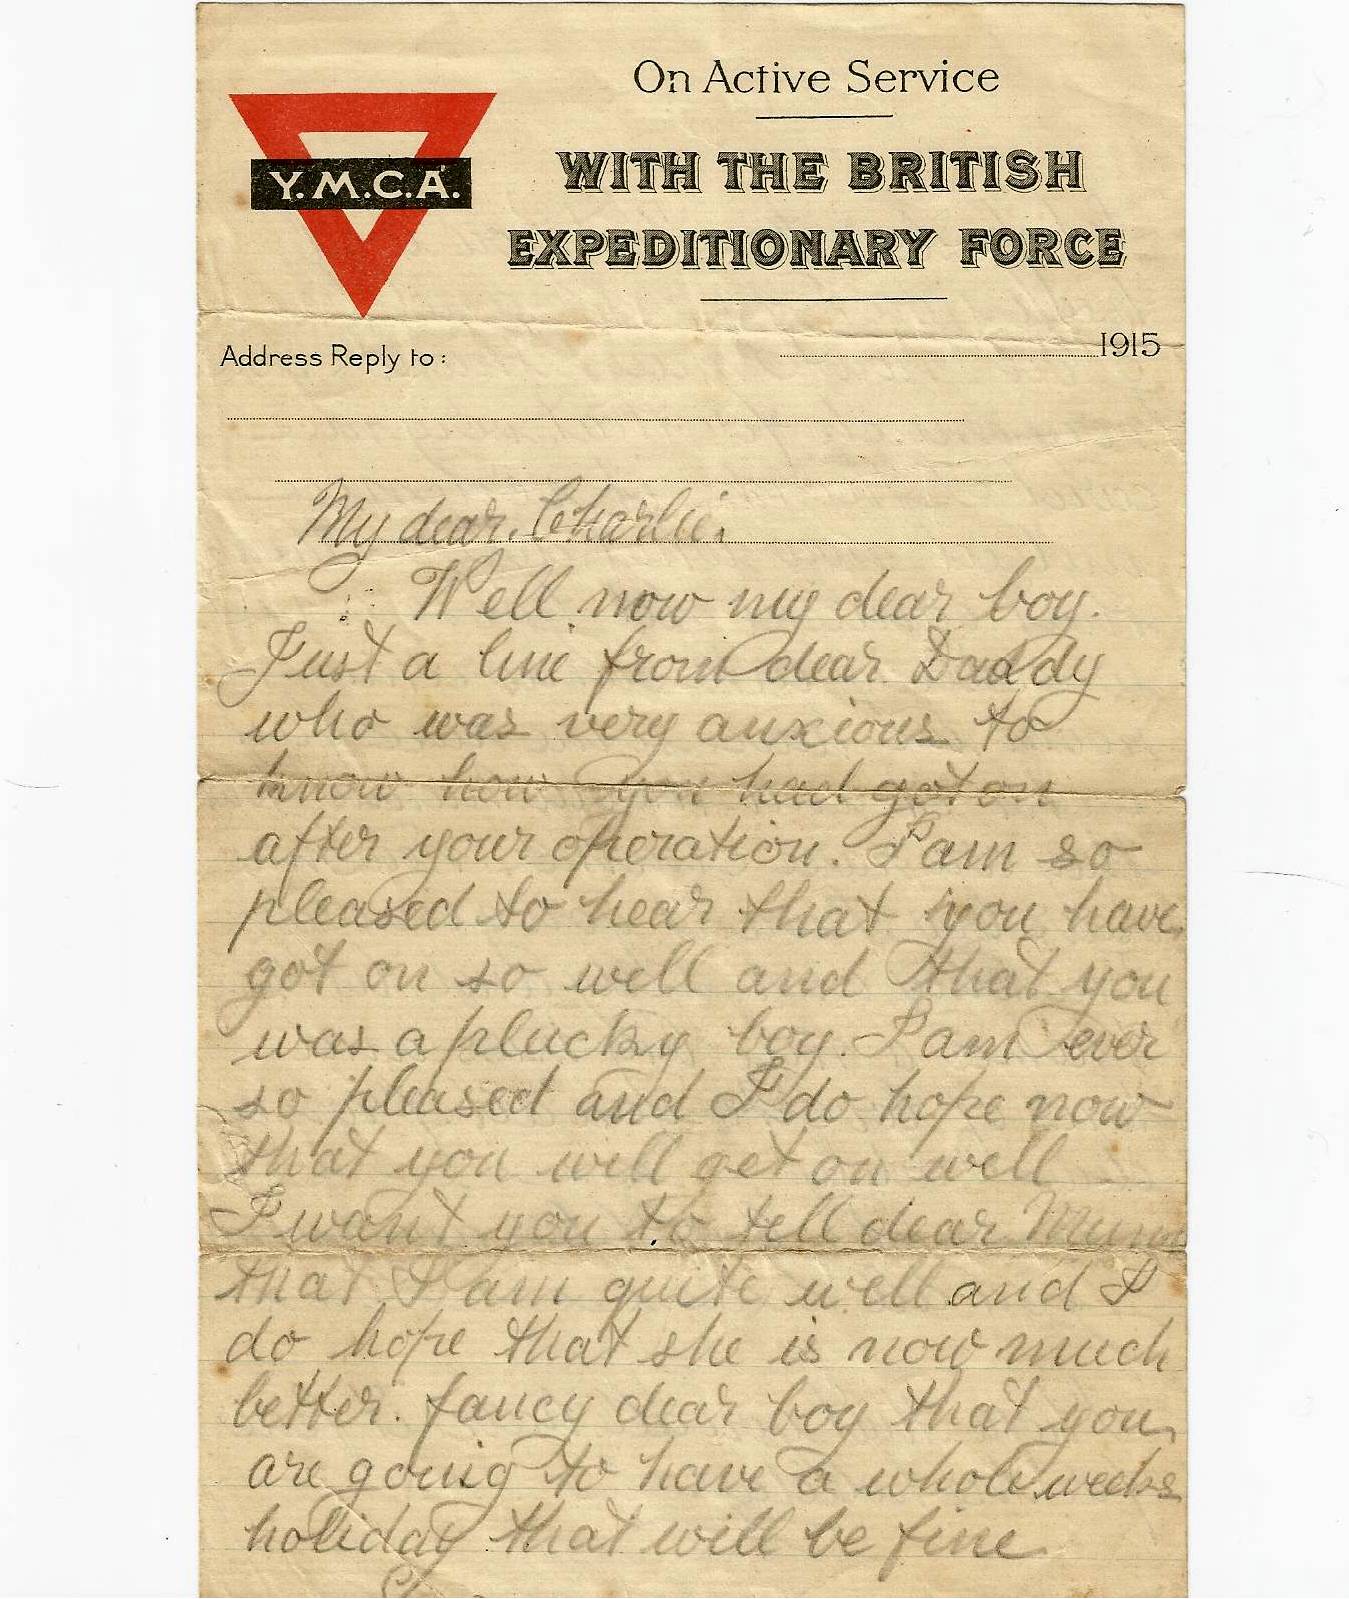 On Active Service
Y.M.C.A.
WITH THE BRITISH
EXPEDITIONARY FORCE
1915
Address Reply to:
My dear Charlie.
Well now my dear boy.
Just a line from dear Daddy
who was very anxious to
know how you had got on
after your operation. I am so
pleased to hear that you have
got on so well and that you
was a plucky boy. I am ever
so pleased and I do hope now
that you will get on well
I want you to tell dear Mum
that I am quite well and I
do hope that she is now much
better. fancy dear boy that you
are going to have a whole weeks
holiday that will be fine